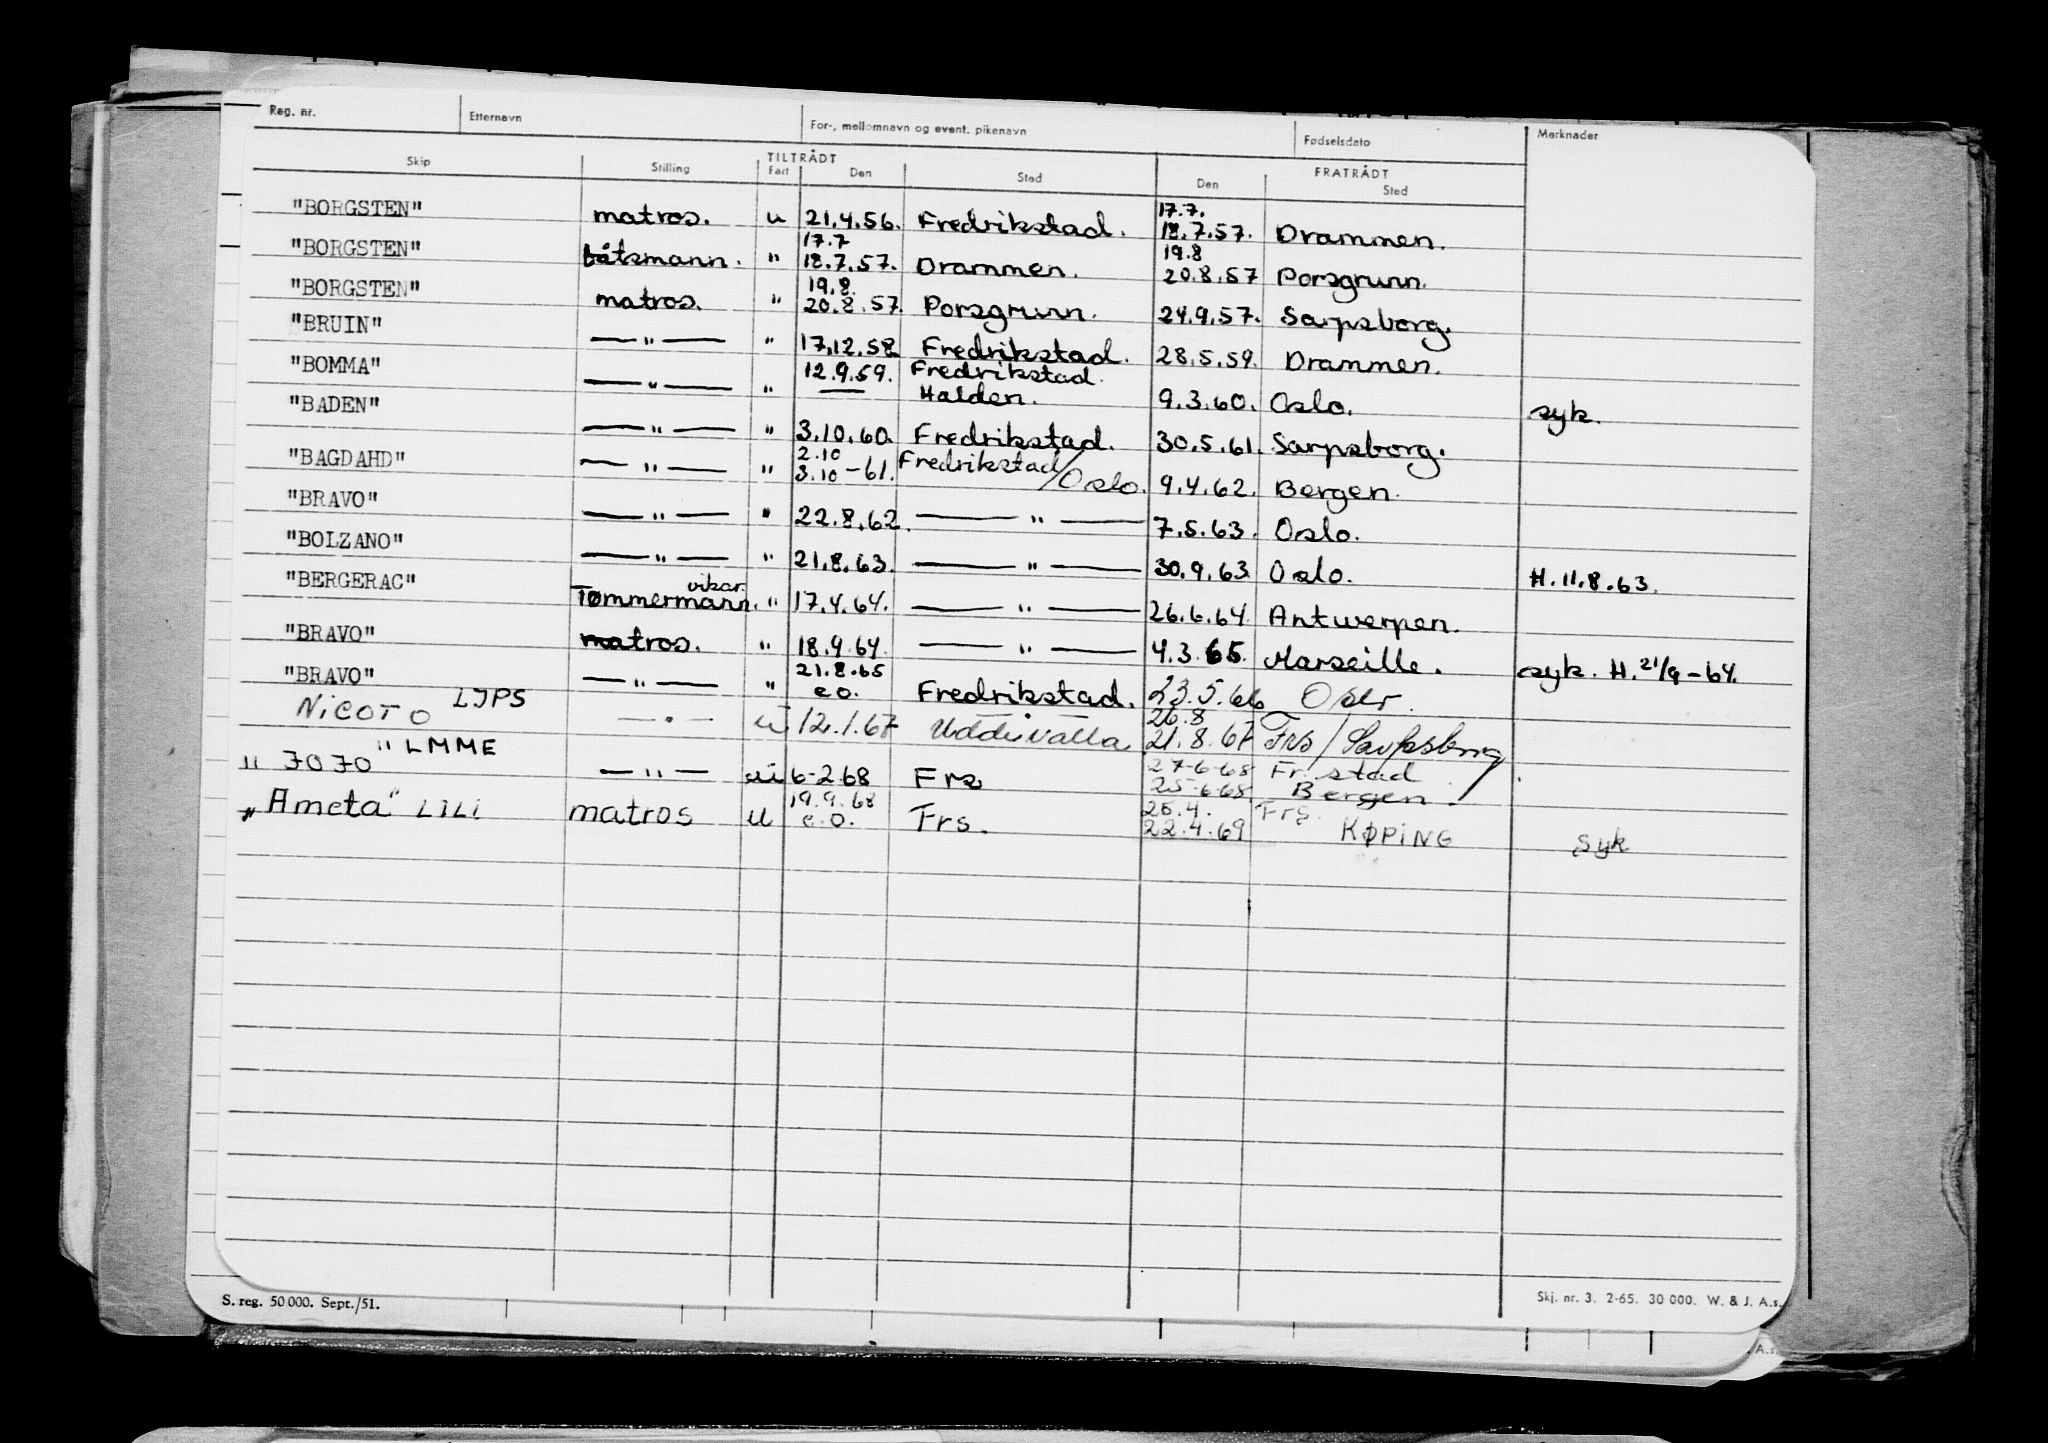 Reg. nr. Etternavn For-, mellomnavn og event. pikenavn Fødselsdato Merknader
TILTRÅDT FRATRÅDT
Skip Stilling Fart Den Sted Den Sted
17.7.
"BORGSTEN" matros. u 21.4.56. Fredrikstad. 18.7.57. Drammen.
17.7 19.8
"BORGSTEN" båtsmann. " 18.7.57. Drammen. 20.8.57 Porsgrunn.
19.8.
"BORGSTEN" matros. " 20.8.57. Porsgrunn. 24.9.57. Sarpsborg.
"BRUIN" — " — " 17.12.58 Fredrikstad. 28.5.59. Drammen.
12.9.59. Fredrikstad.
"BOMMA" — " — " — Halden. 9.3.60. Oslo. syk.
"BADEN" — " — " 3.10.60. Fredrikstad. 30.5.61. Sarpsborg.
2.10
"BAGDAHD" — " — " 3.10-61. Fredrikstad/Oslo. 9.4.62. Bergen.
"BRAVO" — " — " 22.8.62. — " — 7.5.63. Oslo.
"BOLZANO" — " — " 21.8.63. — " — 30.9.63. Oslo. H.11.8.63.
vikar.
"BERGERAC" Tømmermann. " 17.4.64. — " — 26.6.64. Antwerpen.
"BRAVO" matros. " 18.9.64. — " — 4.3.65. Marseille. syk. H. 21/9-64.
21.8.65
"BRAVO" — " — " e.o. Fredrikstad. 23.5.66 Oslo.
26.8
NICOTO LJPS — " — u 12.1.67 Uddevalla 21.8.67 Frs/Sarpsborg
27-6-68 Fr.stad
" JOJO " LMME — " — ui 6-2.68 Frs 25-6-68 Bergen.
19.9.68 25.4. Frs.
"Ameta" LILI matros u e.o. Frs. 22.4.69 KØPING syk
S. reg. 50 000. Sept./51. Skj. nr. 3. 2-65. 30 000. W. & J. A.s.
A.s.